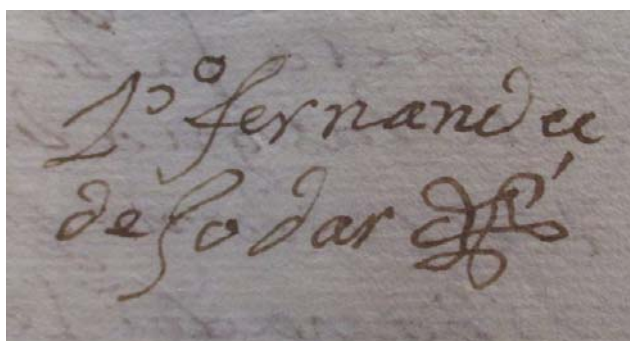 Pº fernandez
de sodar